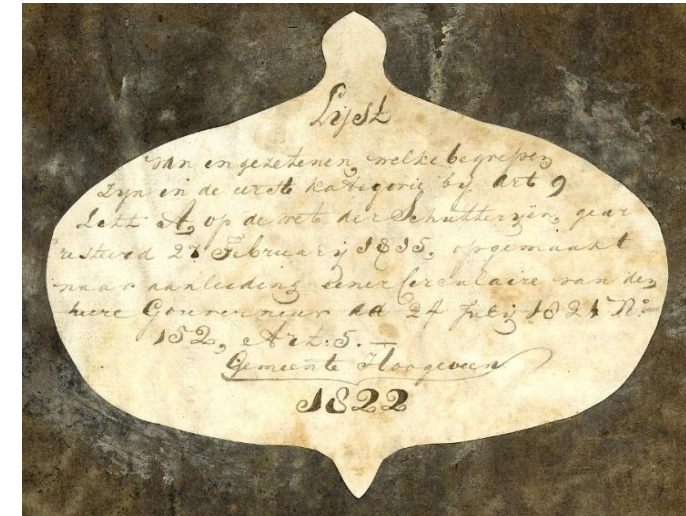 Lijst
van ingezetenen, welke begrepen
zyn in de eerste Kathegorie by art 9
Lett A, op de wet der Schutteryën, gear
resteerd 27 February 1815, opgemaakt
naar aanleiding eener Circulaire van den
heere Gouverneur dd 24 July 1821 No
152, Art: 5. —
Gemeente Hoogeveen
1822